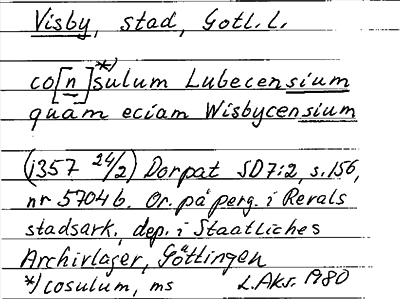 Visby, stad, Gotl. l.
co[n]*)sulum Lubecensium
quam eciam Wisbycensium
(1357 24/2) Dorpat SD7:2, s.156,
nr 5704 b. Or. på perg. i Revals
stadsark., dep. i Staatliches
Archivlager, Göttingen
*) cosulum, ms L.Aks. 1980